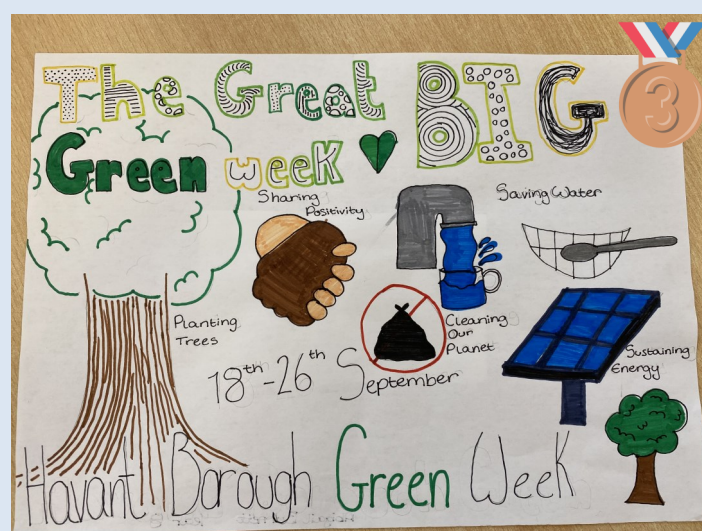 The Great BIG
Green week
Sharing
Positivity
Saving Water
Planting
Trees
Cleaning
Our
Planet
Sustaining
Energy
18th-26th September
Havant Borough Green Week
3